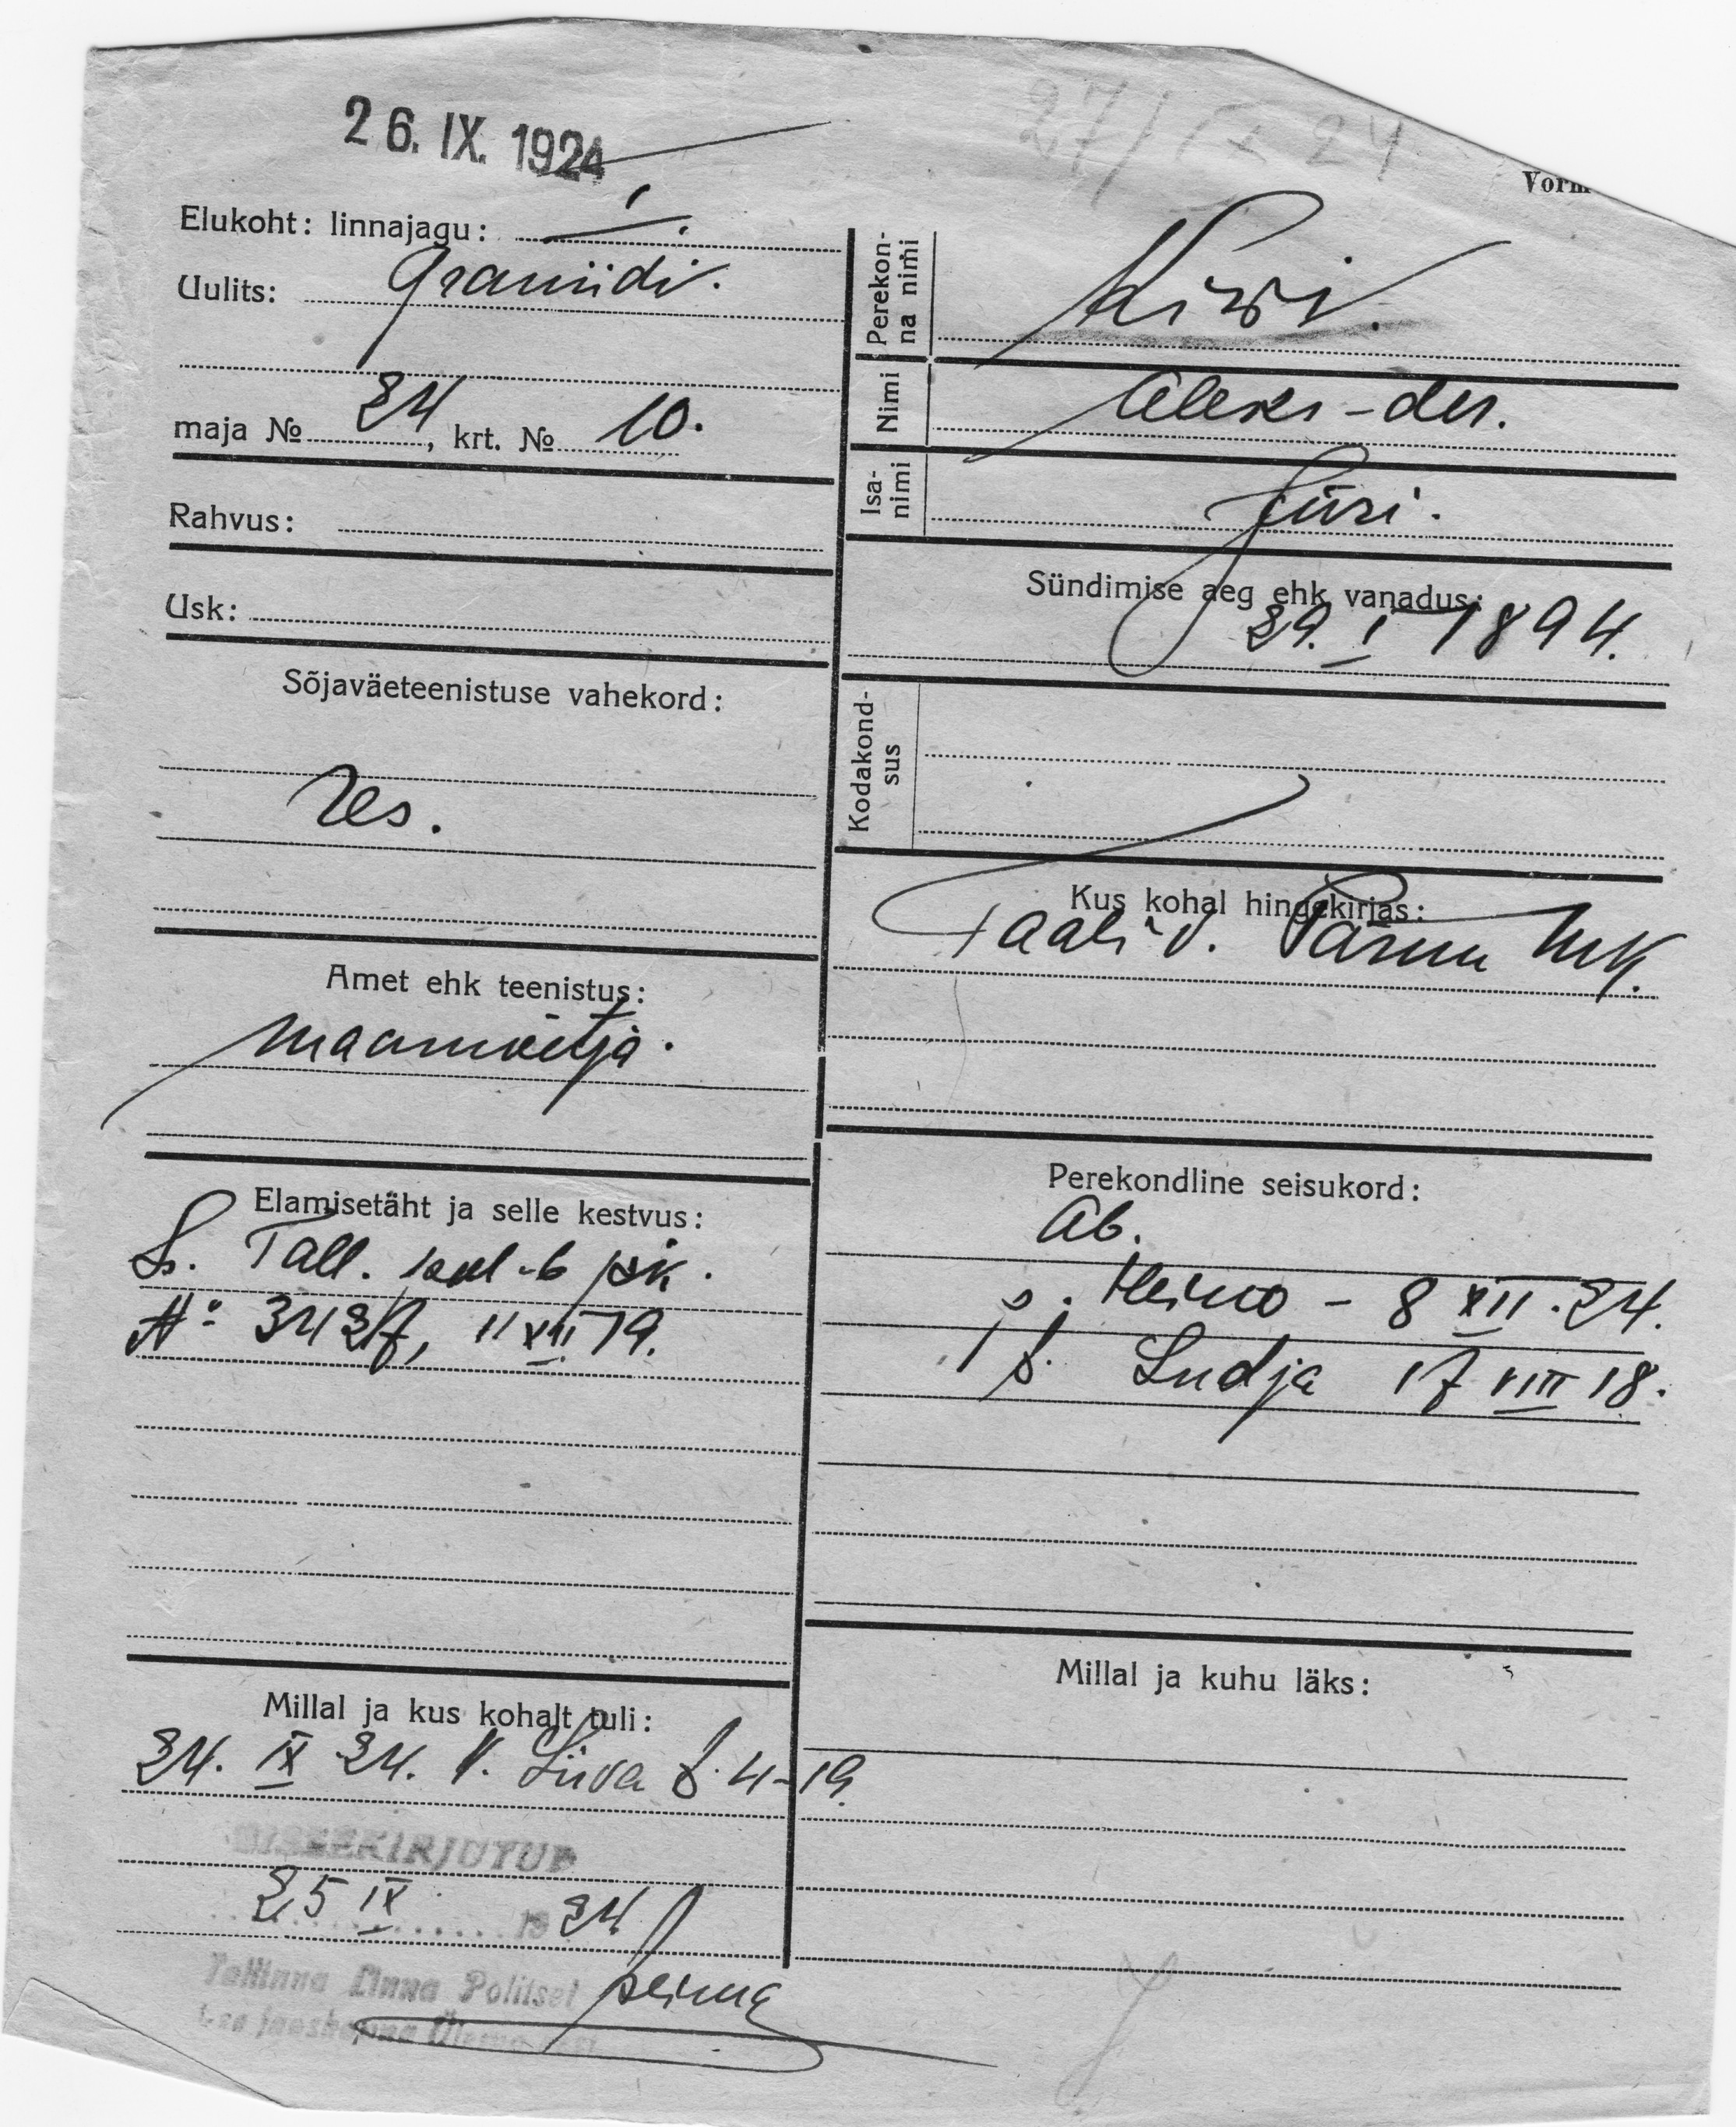 26. IX. 1924
27/IX 24
Vorm
Elukoht: linnajagu: I.
Uulits: Graniidi.
maja № 24, krt. № 10.
Rahvus:
Usk:
Sõjaväeteenistuse vahekord:
Res.
Amet ehk teenistus:
maamõõtja.
Elamisetäht ja selle kestvus:
Tall.
№ 3427, 11 XII 19.
Millal ja kus kohalt tuli:
24. IX 24. V. Liiva t. 4-19.
SISSEKIRJUTUD
25 IX 1924
Tallinna Linna Politsei
Perekon-
na nimi
Kiwi.
Nimi
Aleks-der.
Isa-
nimi
Jüri.
Sündimise aeg ehk vanadus:
29. I 1894.
Kodakond-
sus
Kus kohal hingekirjas:
Taali v. Pärnu mk.
Perekondline seisukord:
Ab.
p. Heino - 8 XII. 24.
t. Ludja 17 VIII 18.
Millal ja kuhu läks: